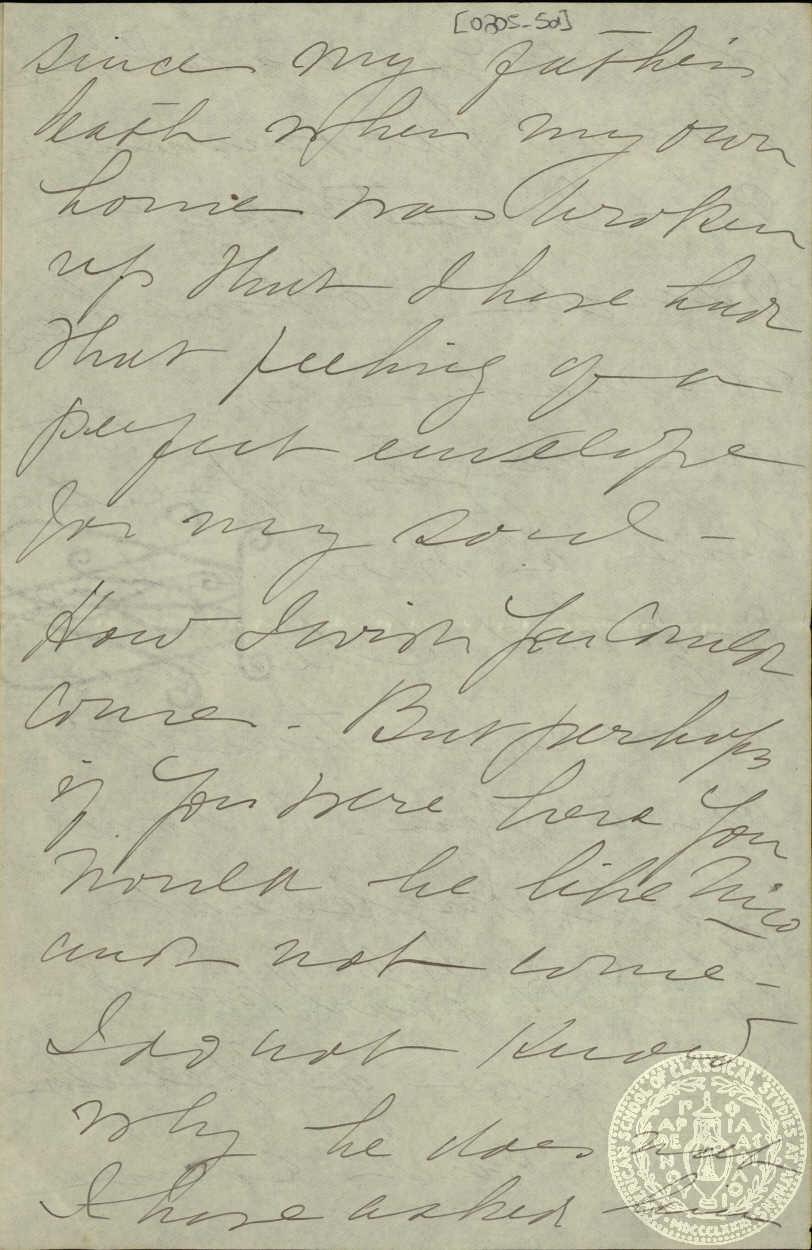 [0205-50]
since my father's
death when my own
home was broken
up that I have had
that feeling of a
perfect envelope
for my soul -
How I wish you could
come - But perhaps
if you were here you
would be like Nico
and not come -
I do not know
why he does not
I have asked him
AMERICAN SCHOOL OF CLASSICAL STUDIES AT ATHENS
MDCCCLXXXI